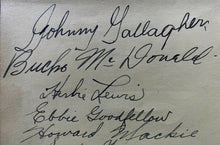 Johnny Gallagher
Bucko McDonald
Herbie Lewis
Ebbie Goodfellow
Howard Mackie